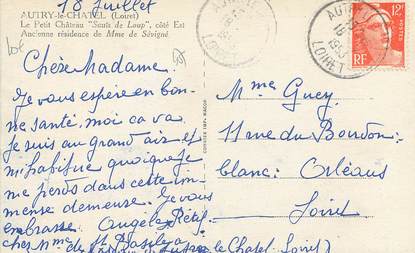 18 Juillet
AUTRY-le-CHATEL (Loiret)
Le Petit Château "Sauts de Loup", côté Est
Ancienne résidence de Mme de Sévigné
Lot
Chère Madame,
Je vous espère en bon-
ne santé, moi ça va
je suis au grand air et
m'habitue quoique je
me perds dans cette im-
mense demeure. Je vous
embrasse. Angèle Rétif
chez Mme de St
le Chatel - Loiret)
Mme Guey
11 rue du Bourdon-
blanc. Orléans
Loiret
12F
POSTES
RF
AUTRY
LOIRET